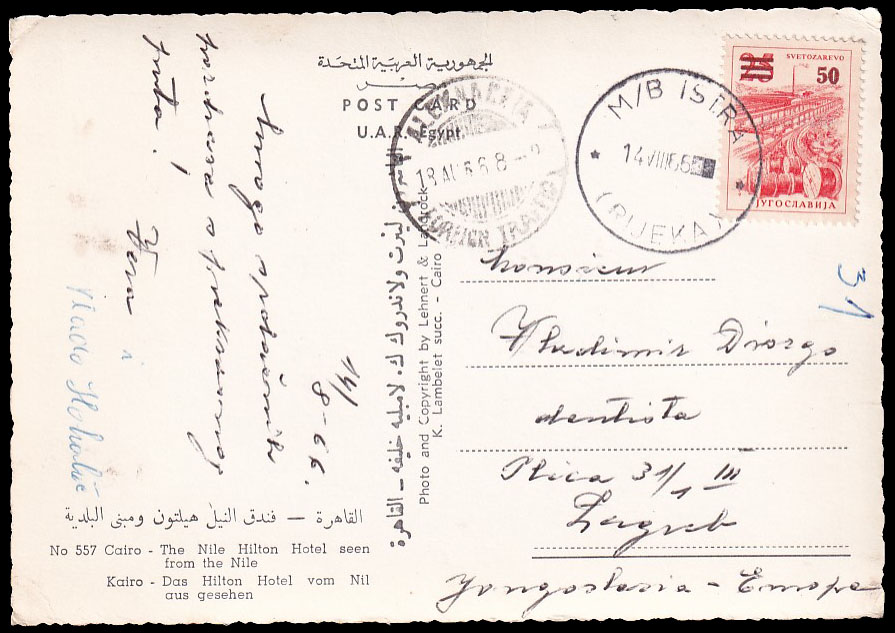 الجمهورية العربية المتحدة
مصر
POST CARD
U.A.R. Egypt
ALEXANDRIA
18 AU 66 8 -
FOREIGN TRAFFIC
M/B ISTRA
14 VIII 66
(RIJEKA)
SVETOZAREVO
25 50
ЈУГОСЛАВИЈА
14/
8-66.
Mnogo srdačnih
pozdrava s prekrasnog
puta!
Vera i
Vlado
31
Monsieur
Vladimir Drozgo
dentista
Plica 31/1 III
Zagreb
Yougoslavia - Europa
القاهرة – فندق النيل هيلتون ومبنى البلدية
No 557 Cairo - The Nile Hilton Hotel seen
from the Nile
Kairo - Das Hilton Hotel vom Nil
aus gesehen
لنرت ولاندروك ك. لامبليه خليفه – القاهرة
Photo and Copyright by Lehnert & Landrock
K. Lambelet succ. - Cairo